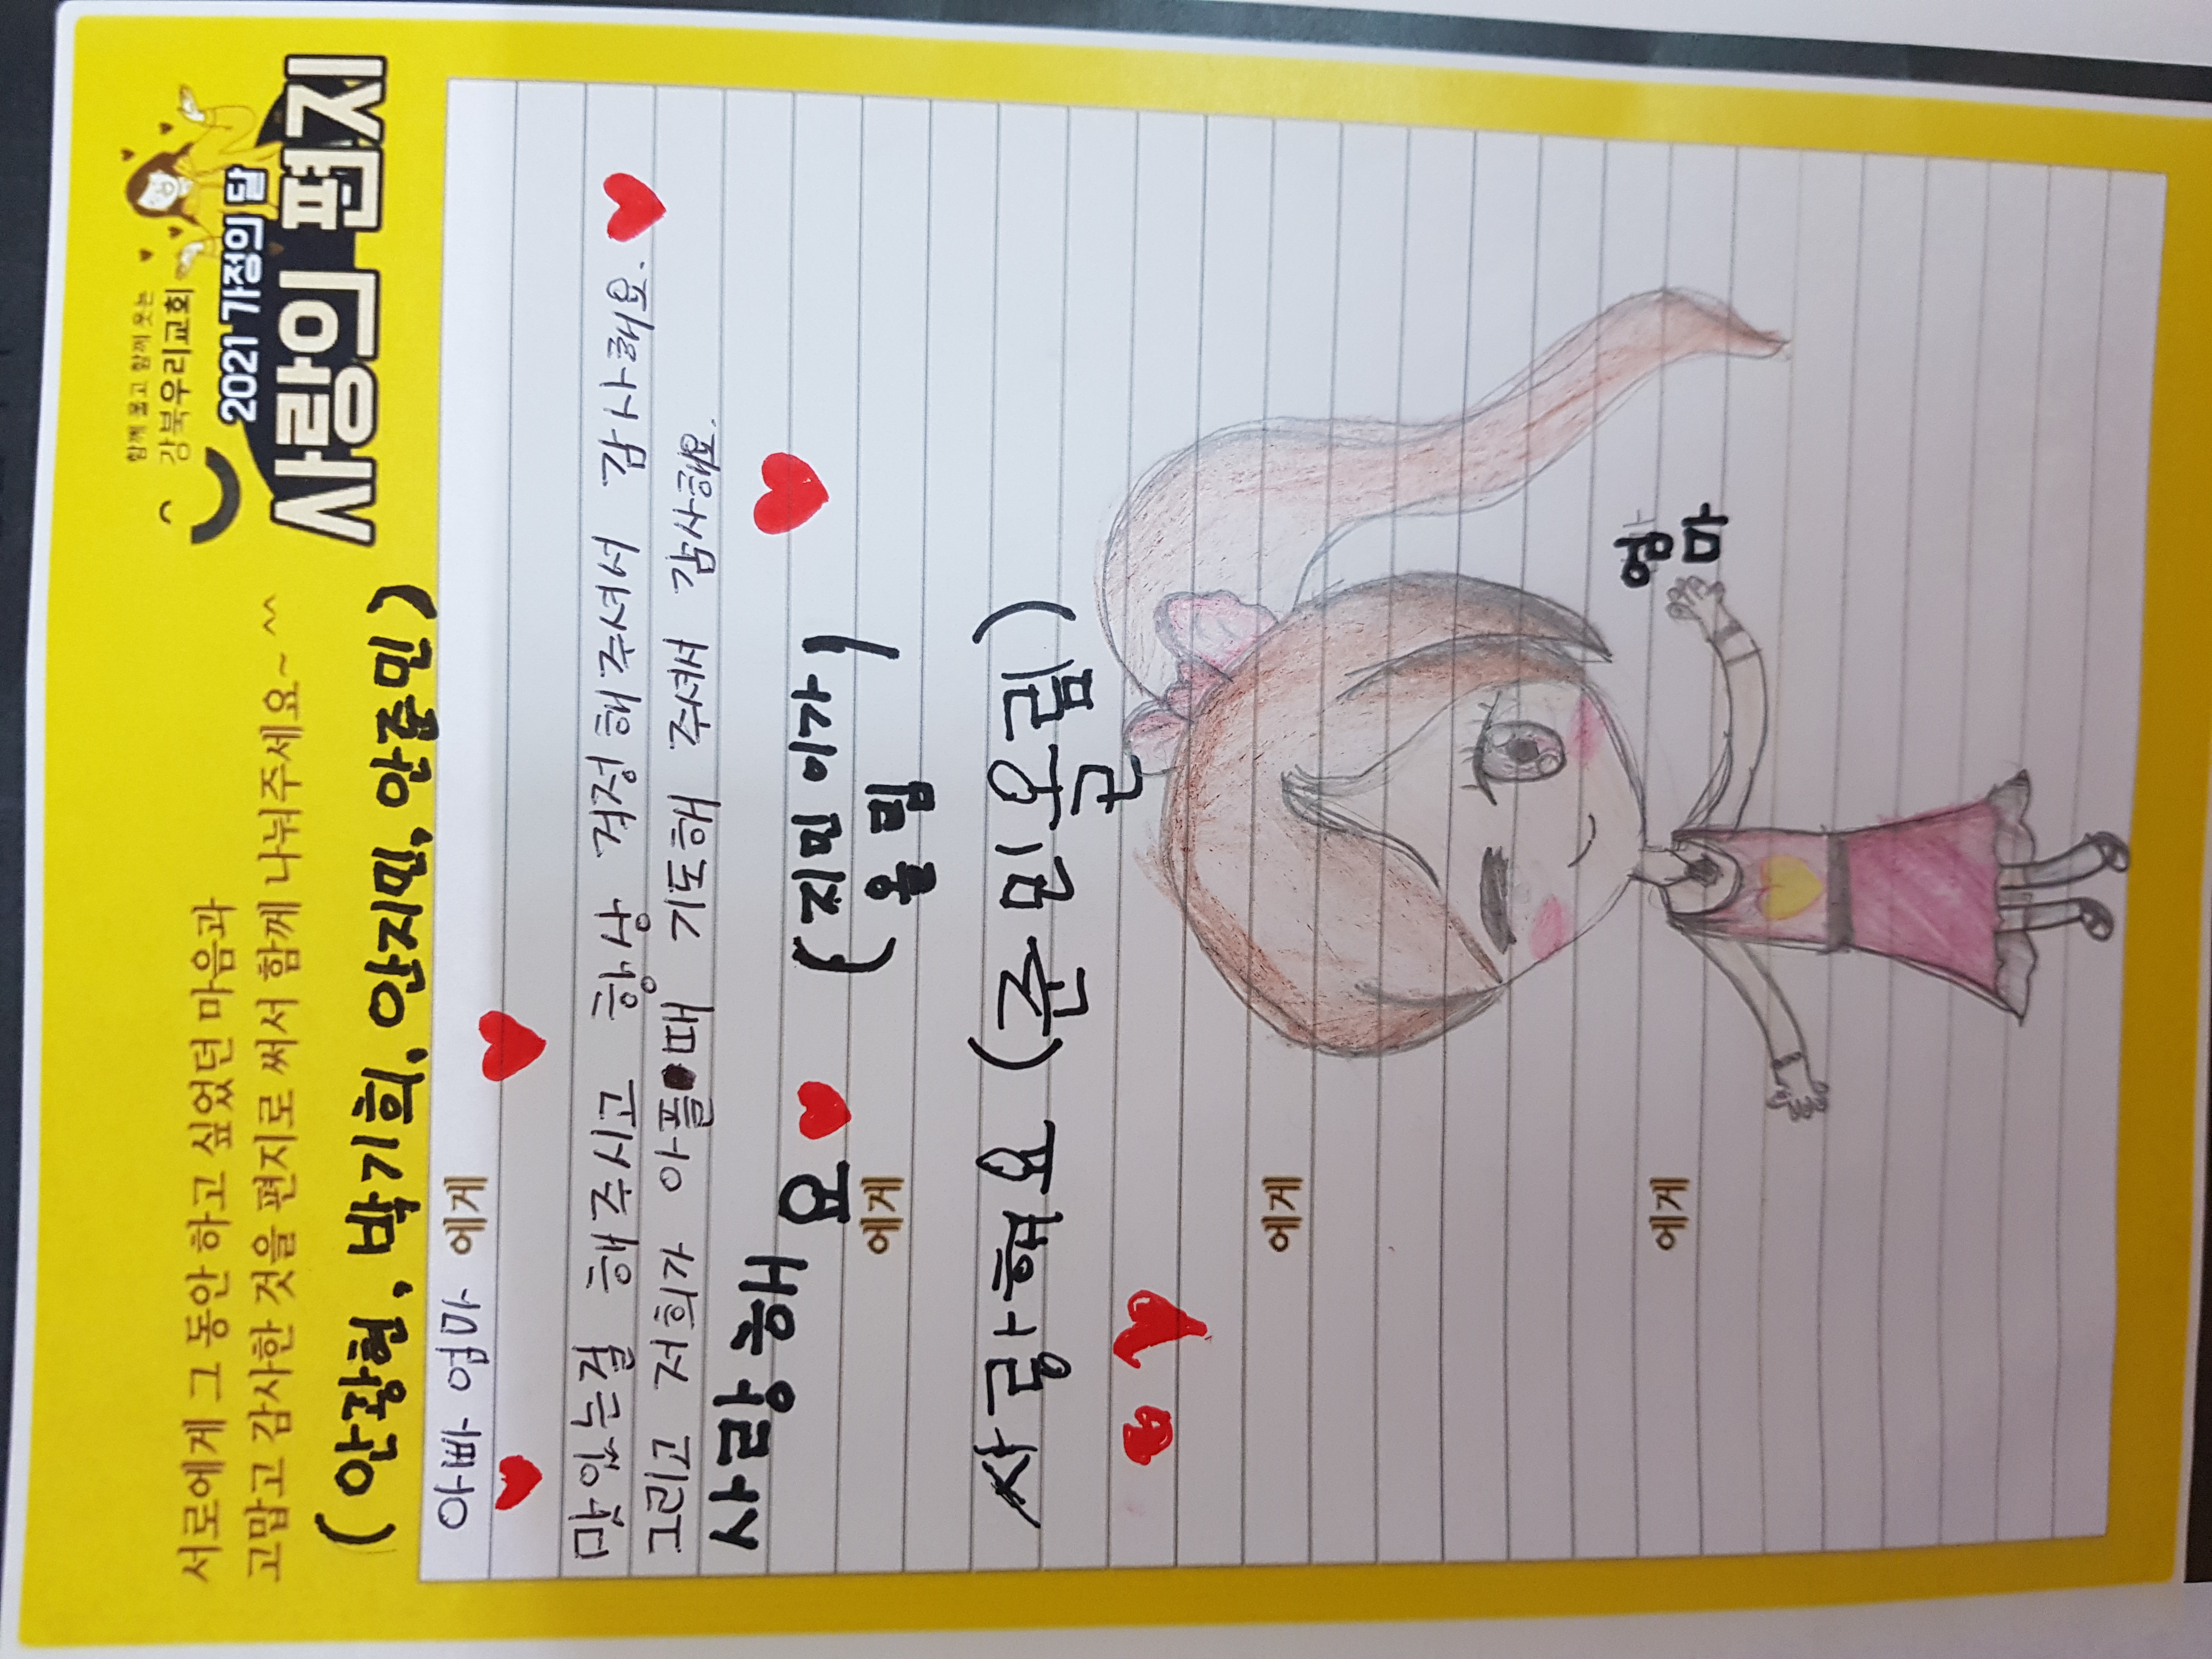 함께 울고 함께 웃는
강북우리교회
2021 가정의 달
사랑의 편지
서로에게 그 동안 하고 싶었던 마음과
고맙고 감사한 것을 편지로 써서 함께 나눠주세요~ ^^
(안광현, 박기희, 안지민, 안준민)
아빠 엄마 에게
맛있는걸 해주시고 항상 걱정해주셔서 감사해요.
그리고 저희가 아플때 기도해 주셔서 감사해요.
사랑해요 (지민이가
올림)
에게
사랑해요 (준민 올림)
에게
에게
엄마